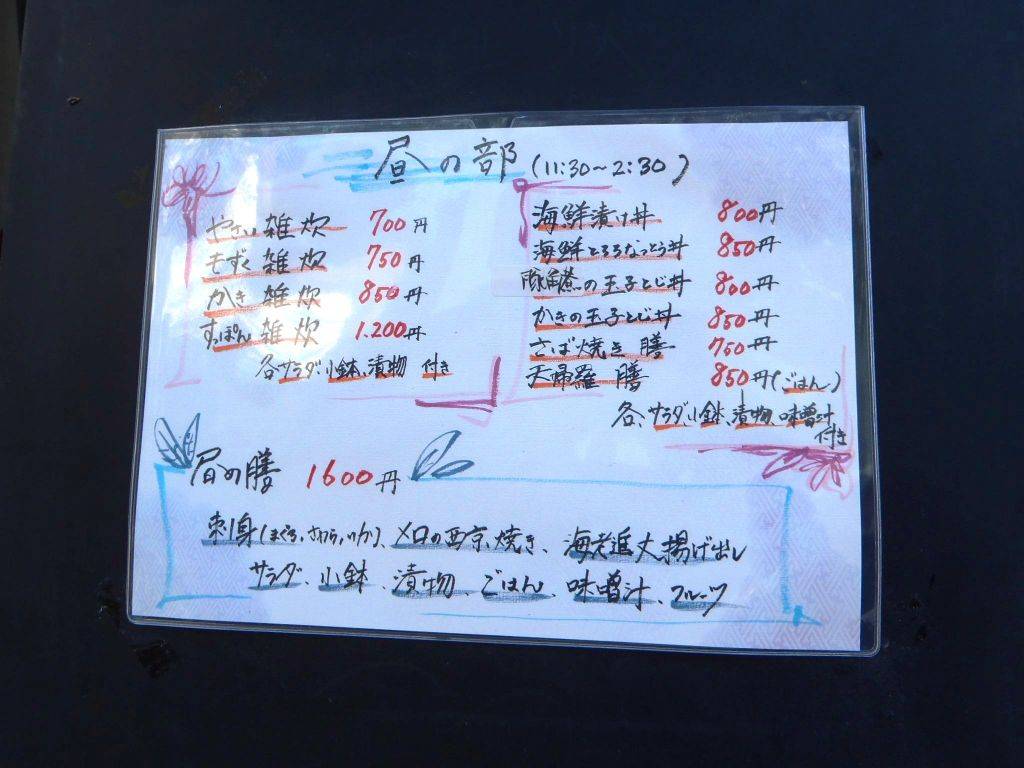 昼の部 (11:30~2:30)
やさい雑炊 700円
もずく雑炊 750円
かき雑炊 850円
すっぽん雑炊 1.200円
各サラダ、小鉢、漬物 付き
海鮮漬け丼 800円
海鮮とろろなっとう丼 850円
豚角煮の玉子とじ丼 800円
かきの玉子とじ丼 850円
さば焼き膳 750円
天婦羅膳 850円(ごはん)
各、サラダ、小鉢、漬物、味噌汁
付き
昼の膳 1600円
刺身(まぐろ,さわら,いか)、メロの西京焼き、海老進丈揚げ出し
サラダ、小鉢、漬物、ごはん、味噌汁、フルーツ